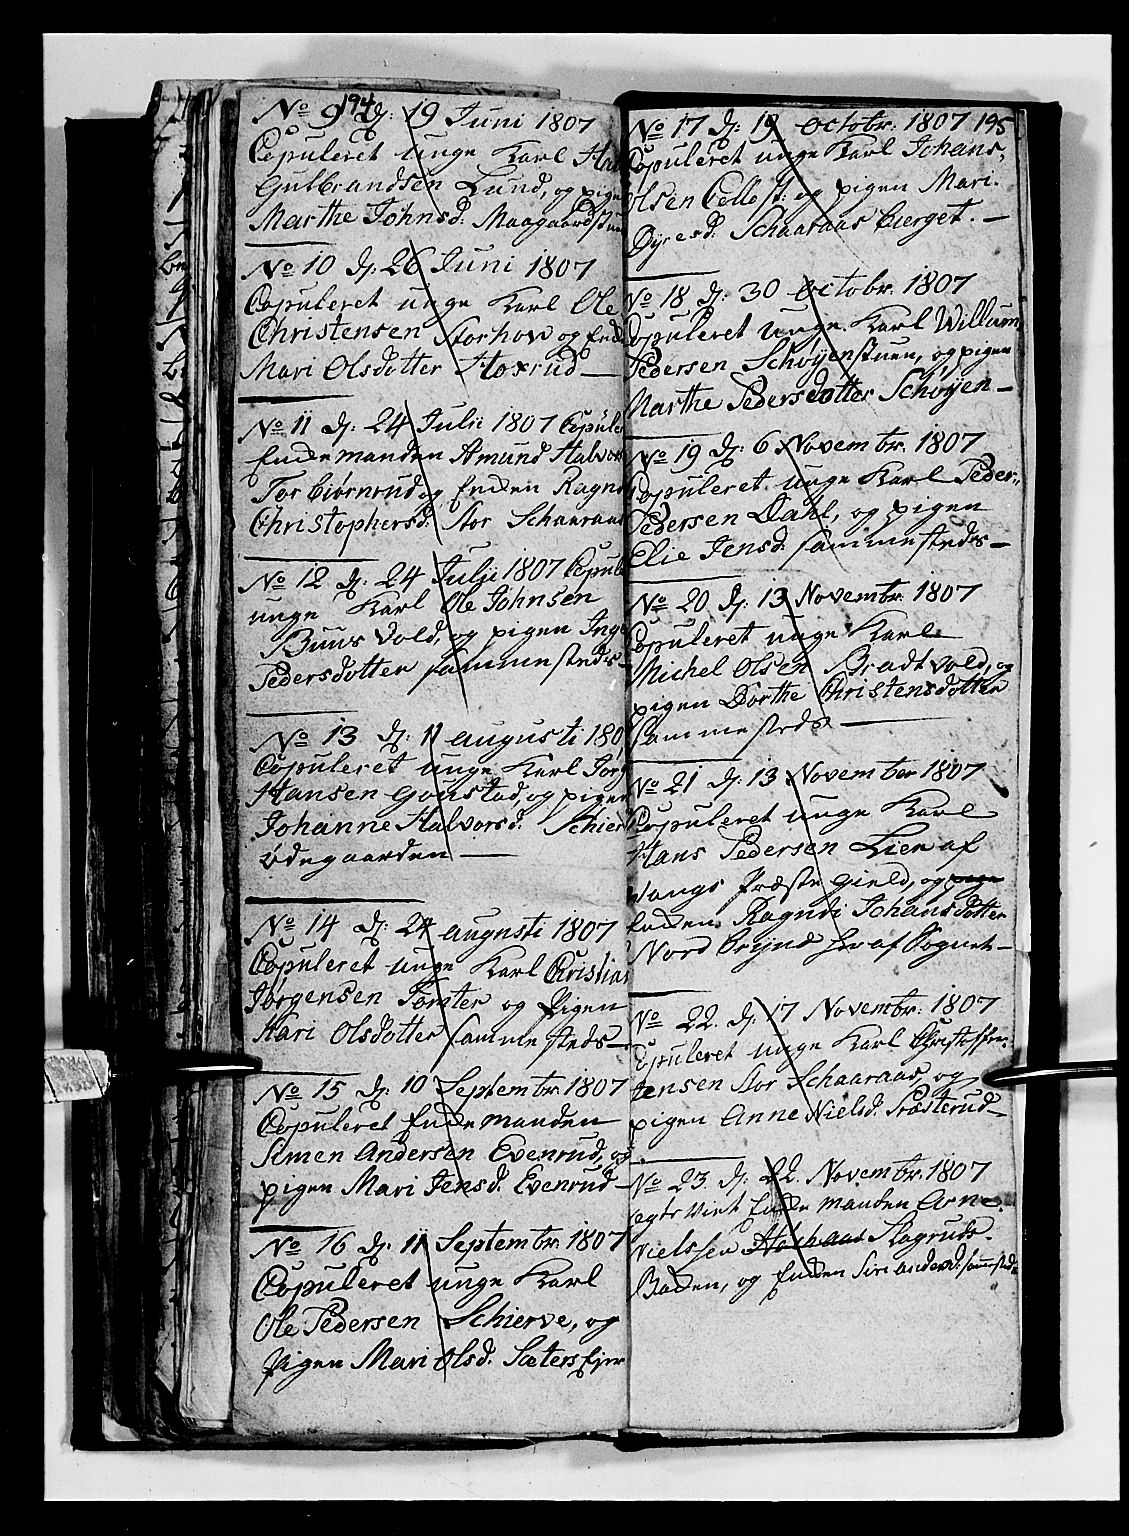 194
No 9 dj: 19 Juni 1807
Copuleret unge Karl
Gulbrandsen Lund, og pigen
Marthe Johnsd: Maagaardstuen
No 10 dj: 26 Juni 1807
Copuleret unge Karl Ole
Christensen Storhov og Enk
Mari Olsdotter Hoxrud —
No 11 dj: 24 Julii 1807 Copule
Enkemanden Amund Halvors
Torbiørnrud og Enken Ragn
Christophersd: Stor Schaaraas
No 12 dj: 24 Julii 1807 Copule
unge Karl Ole Johnsen
Buusvold, og pigen Inge
Pedersdotter sammesteds —
No 13 dj: 11 augusti 180
Copuleret unge Karl Jørg
Hansen Gonstad, og pigen
Johanne Halvorsd: Schier
ødegaarden —
No 14 dj: 24 augusti 1807
Copuleret unge Karl Christian
Jørgensen Tomter og Pigen
Kari Olsdotter sammesteds —
No 15 dj: 10 Septembr: 1807
Copuleret Enkemanden
Simen Andersen Evenrud, og
pigen Mari Jensd. Evenrud —
No 16 dj: 11 Septembr: 1807
Copuleret unge Karl
Ole Pedersen Schierve, og
Pigen Mari Olsd. Sætersejer
195
No 17 dj: 19 Octobr: 1807
Copuleret unge Karl Johans
Olsen og pigen Mari
Dyresd: Schaaraas bierget. —
No 18 dj: 30 Octobr: 1807
Copuleret unge Karl Willum
Pedersen Schøyenstuen, og pigen
Marthe Pedersdotter Schøyen —
No 19 dj: 6 Novembr: 1807
Copuleret unge Karl Peder
Pedersen Dahl, og pigen
Elie Jensd: sammesteds —
No 20 dj: 13 Novembr: 1807
Copuleret unge Karl
Michel Olsen Bradtvold, og
pigen Dorthe Christensdotter
sammesteds —
No 21 dj: 13 November 1807
Copuleret unge Karl
Hans Pedersen Lien af
Vangs Præstegield, og pige
Enken Ragndi Johansdotter
Nord Brynd her af Sognet —
No 22. dj: 17 Novembr: 1807
Copuleret unge Karl Christoffer
Jensen Stor Schaaraas, og
pigen Anne Nielsd. Præsterud —
No 23 dj: 22. Novembr: 1807
ægteviet Enkemanden Arne
Nielssen Slagruds
Backen, og Enken Siri Andersd: sammesteds